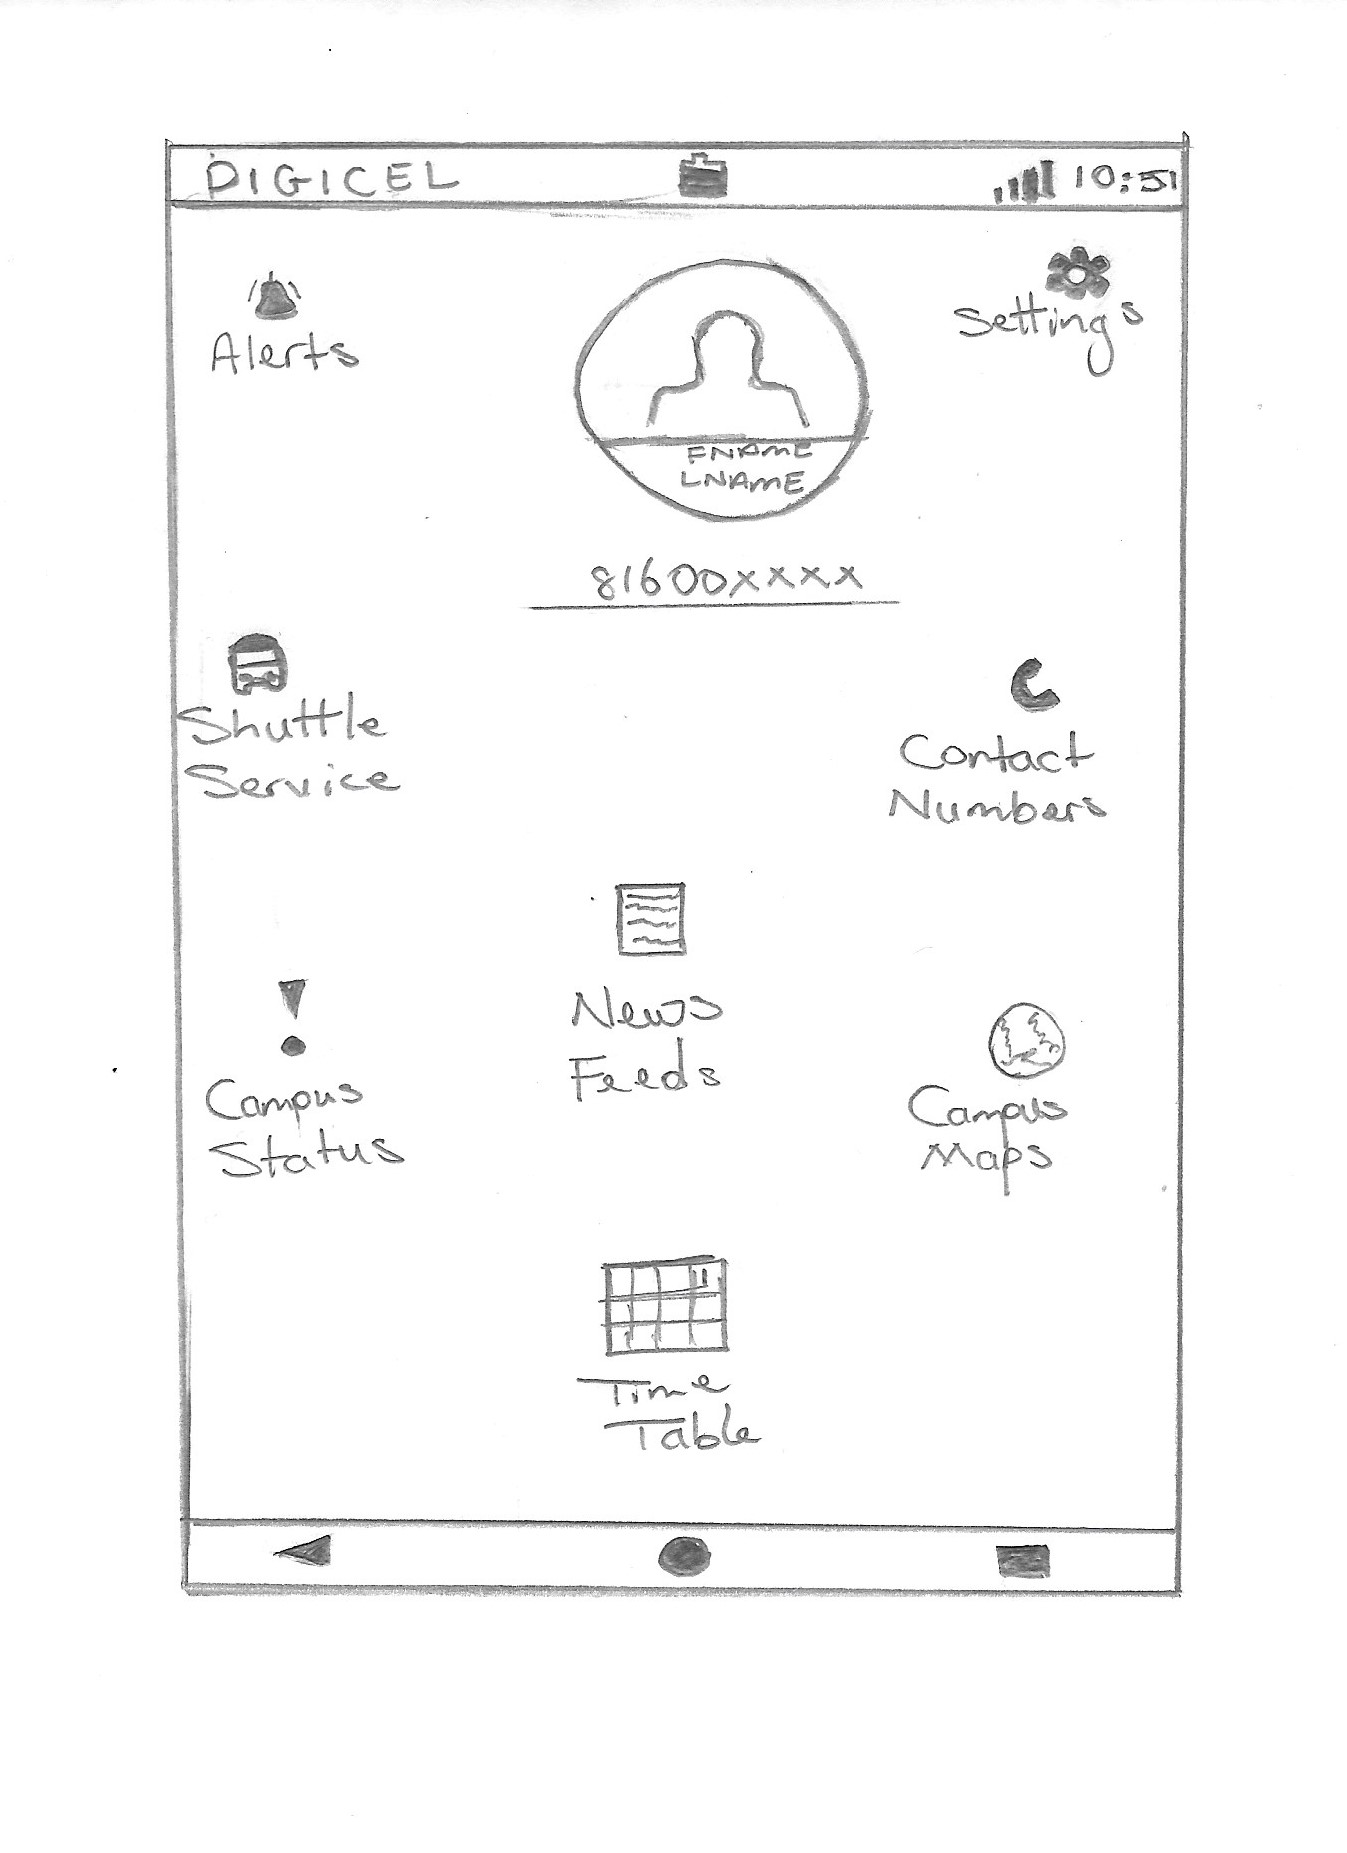 DIGICEL
10:51
Alerts
Settings
FNAME
LNAME
81600xxxx
Shuttle
Service
Contact
Numbers
News
Feeds
Campus
Status
Campus
Maps
Time
Table